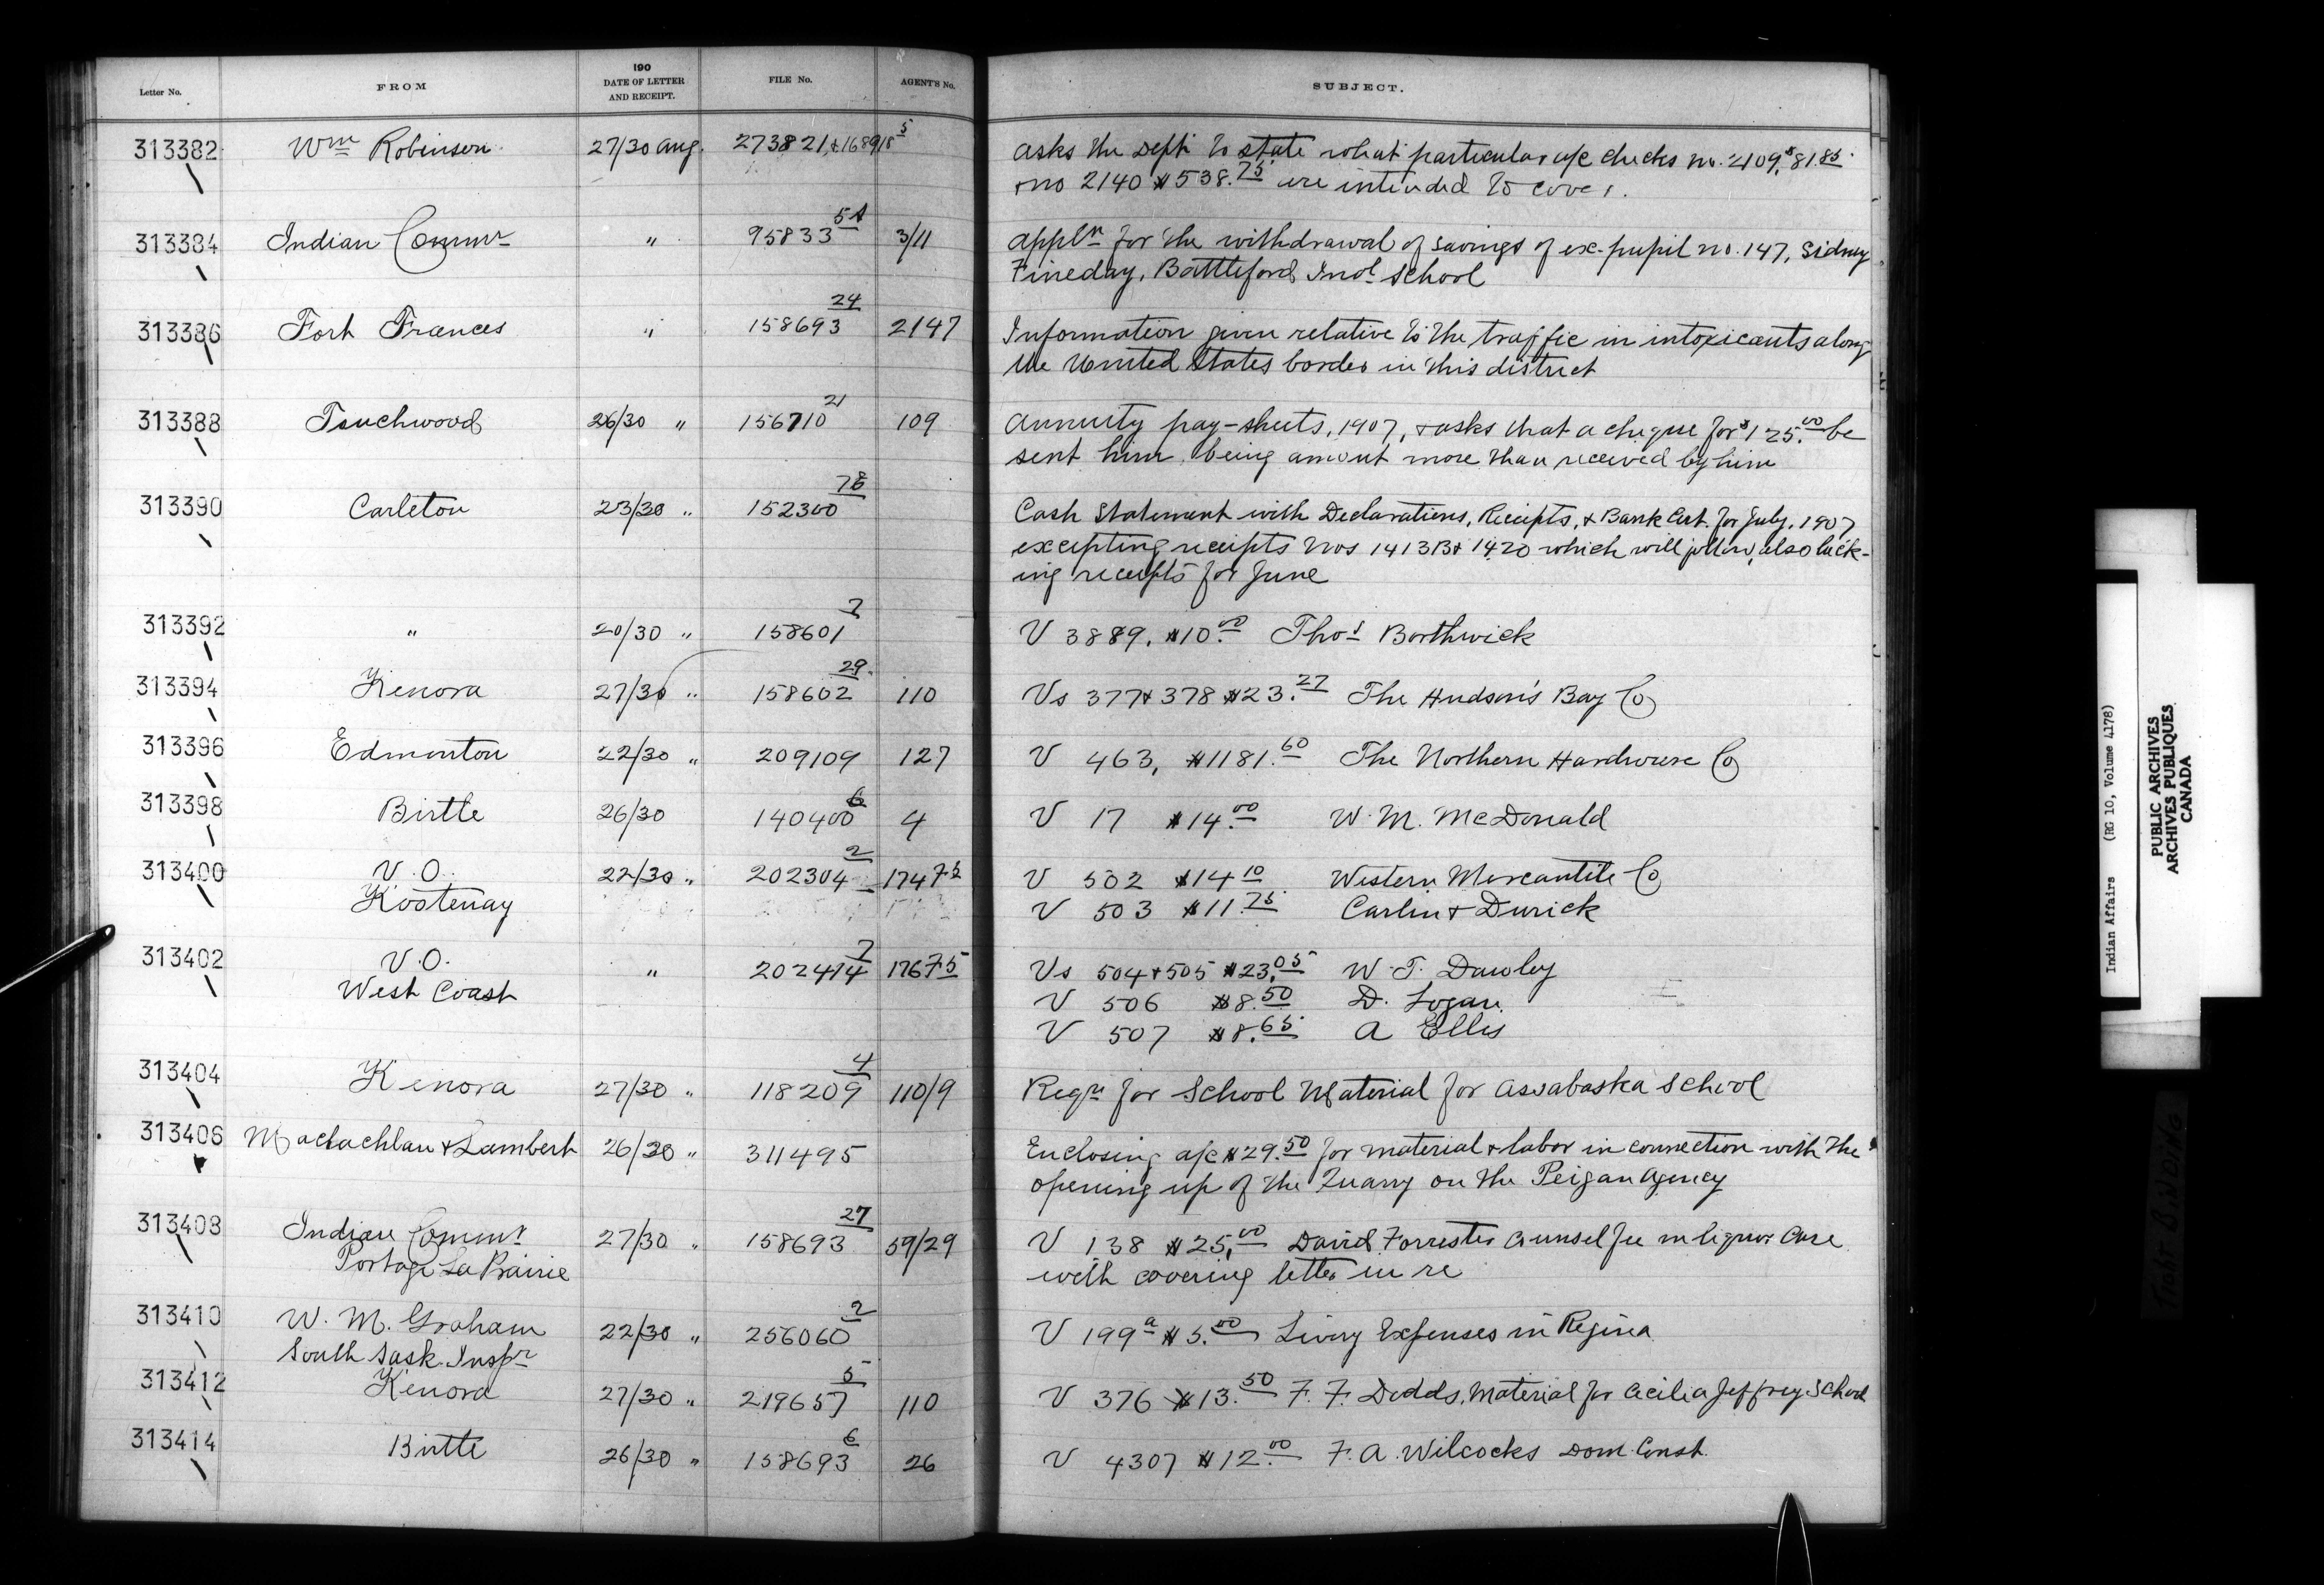 Letter No. FROM 190 DATE OF LETTER AND RECEIPT. FILE No. AGENT'S No. SUBJECT.
313382 Wm Robinson 27/30 Aug. 273821 & 168918 5 Asks the Dept to state what particular a/c checks no. 2109, $81.85
& no 2140 $538.75 are intended to cover.
313384 Indian Commr " 95833 5A 3/11 Appln for the withdrawal of savings of ex-pupil no. 147, Sidney
Fineday, Battleford Indl School
313386 Fort Frances " 158693 24 2147 Information given relative to the traffic in intoxicants along
the United States border in this district
313388 Touchwood 26/30 " 156710 21 109 Annuity pay-sheets, 1907, & asks that a cheque for $125.00 be
sent him being amount more than received by him
313390 Carleton 23/30 " 152300 78 Cash Statement with Declarations, Receipts, & Bank Cert. for July, 1907
excepting receipts Nos 1413B & 1420 which will follow, also lack-
ing receipts for June
313392 " 20/30 " 158601 7 V 3889. $10.00 Thos Borthwick
313394 Kenora 27/30 " 158602 29 110 Vs 377 & 378 $23.27 The Hudson's Bay Co
313396 Edmonton 22/30 " 209109 127 V 463, $1181.60 The Northern Hardware Co
313398 Birtle 26/30 140400 6 4 V 17 $14.00 W. M. McDonald
313400 V.O. 22/30 " 202304 2 V 502 $14.10 Western Mercantile Co
Kootenay V 503 $11.75 Carlin & Durick
313402 V.O. " 202414 7 Vs 504 & 505 $23.05 W. T. Dawley
West Coast V 506 $8.50 D. Logan
V 507 $8.65 A Ellis
313404 Kenora 27/30 " 118209 4 110/9 Reqn for School Material for Assabaska School
313406 Maclachlan & Lambert 26/30 " 311495 Enclosing a/c $29.50 for material & labor in connection with the
opening up of the Quarry on the Peigan Agency
313408 Indian Commr 27/30 " 158693 27 59/29 V 138 $25.00 David Forrester Counsel fee in liquor Case
Portage La Prairie with covering letter in re
313410 W. M. Graham 22/30 " 256060 2 V 199a $5.00 Living Expenses in Regina
South Sask. Inspr
313412 Kenora 27/30 " 219657 5 110 V 376 $13.50 F. F. Dodds, Material for Cecilia Jeffrey School
313414 Birtle 26/30 " 158693 6 26 V 4307 $12.00 F. A. Wilcocks Dom. Const.
Indian Affairs (RG 10, Volume 4178)
PUBLIC ARCHIVES
ARCHIVES PUBLIQUES
CANADA